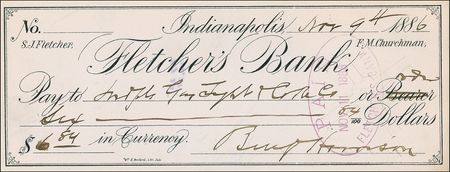 No. Indianapolis, Nov 9th 1886
S.J. Fletcher, F.M. Churchman,
Fletcher's Bank
Pay to Indpls Gas Light & Coke Co or Bearer order
Six 84/100 Dollars
$ 6 84 in Currency. Benj Harrison
PAID
NOV
FLETCHER